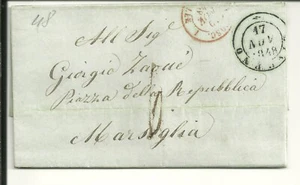 48
All Sigr
Giorgio
Piazza della Repubblica
Marsiglia
17
NOV
1848